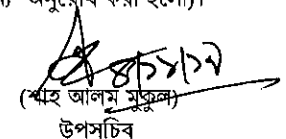 অনুরোধ করা হলো)।
(শাহ আলম মুকুল)
উপসচিব